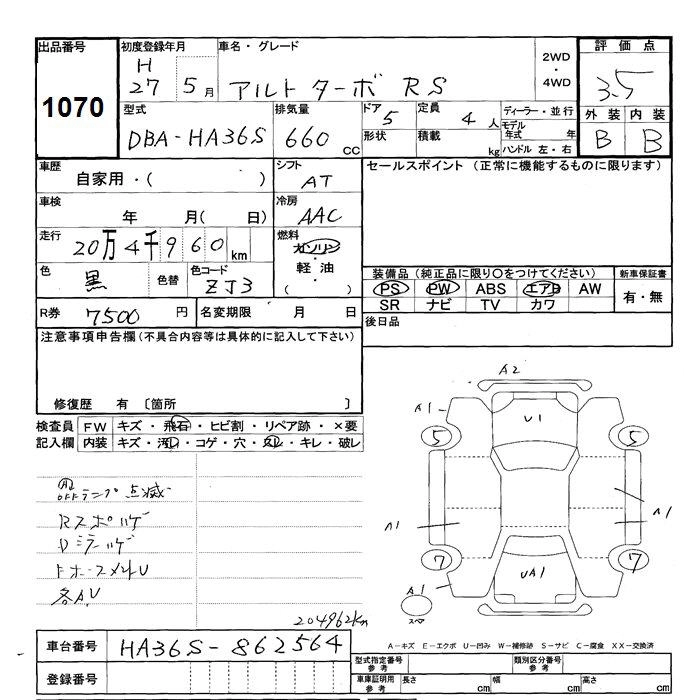 出品番号
1070
初度登録年月
H
27 5月
車名・グレード
アルト ターボ RS
2WD
・
4WD
評価点
3.5
外装 内装
B B
型式
DBA-HA36S
排気量
660 cc
ドア 5
形状
定員 4 人
積載 kg
ディーラー・並行
モデル年式 年
ハンドル 左・右
車歴
自家用・( )
シフト
AT
車検
年 月( 日)
冷房
AAC
走行
20万4千960km
燃料
ガソリン
・
軽油
( )
色
黒
色替
色コード
ZJ3
R券 7500 円
名変期限 月 日
セールスポイント (正常に機能するものに限ります)
装備品(純正品に限り〇をつけてください)
PS PW ABS エアB AW
SR ナビ TV カワ
新車保証書
有・無
後日品
注意事項申告欄(不具合内容等は具体的に記入して下さい)
修復歴 有 〔箇所 〕
検査員 FW キズ・飛石・ヒビ割・リペア跡・×要
記入欄 内装 キズ・汚レ・コゲ・穴・スレ・キレ・破レ
ランプ点滅
Rスポハゲ
Dミラーハゲ
各AU
204962km
A2
A1
U1
5
5
A1
A1
7
7
UA1
A1
スペア
A-キズ E-エクボ U-凹み W-補修跡 S-サビ C-腐食 XX-交換済
車台番号 HA36S-862564
登録番号
型式指定番号
参考
類別区分番号
参考
車庫証明用
参考
長さ cm 幅 cm 高さ cm